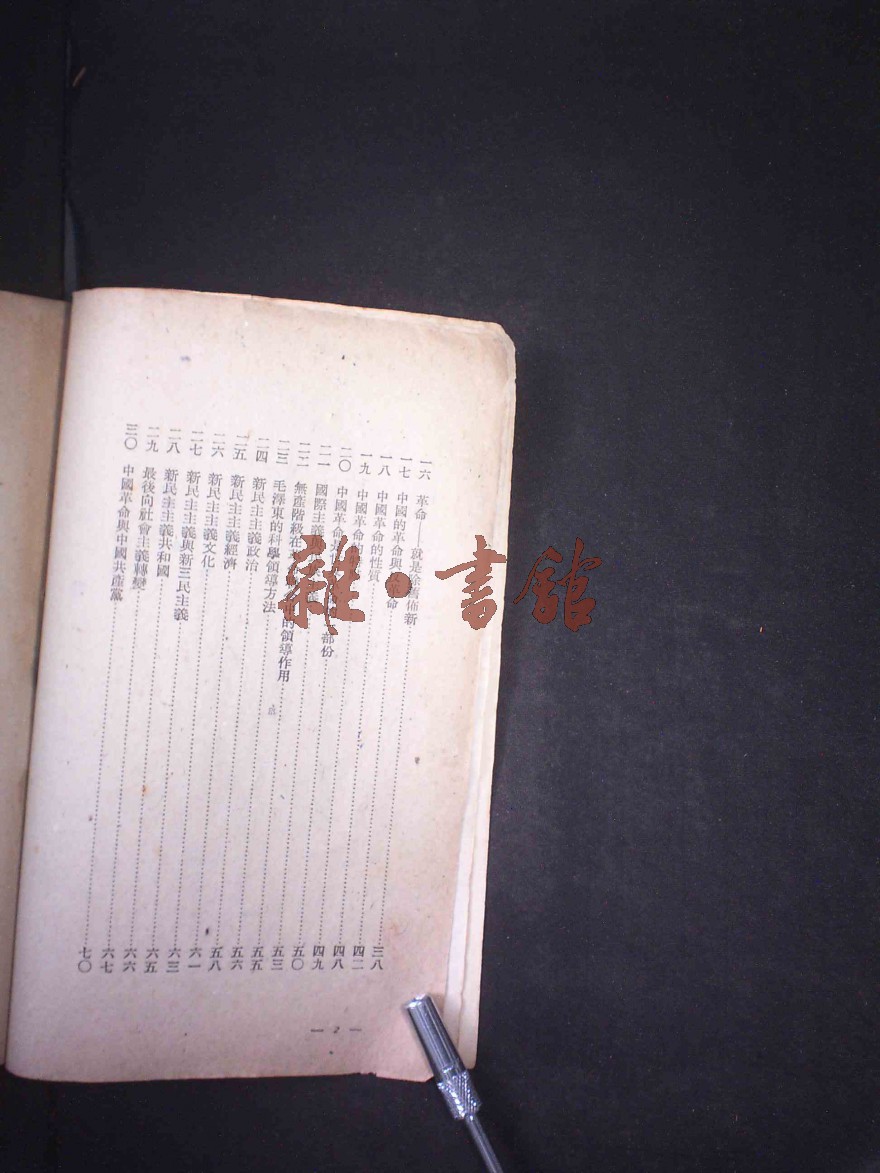 一六 革命——就是除舊佈新 三八
一七 中國的革命與反革命 四二
一八 中國革命的性質 四八
一九 中國革命的 四九
二〇 中國革命 部份 五〇
二一 國際主義 五三
二二 無產階級在 的領導作用 五五
二三 毛澤東的科學領導方法 五六
二四 新民主主義政治 五八
二五 新民主主義經濟 六一
二六 新民主主義文化 六三
二七 新民主主義與新三民主義 六五
二八 新民主主義共和國 六六
二九 最後向社會主義轉變 六七
三〇 中國革命與中國共產黨 七〇
— 2 —
雜·書館